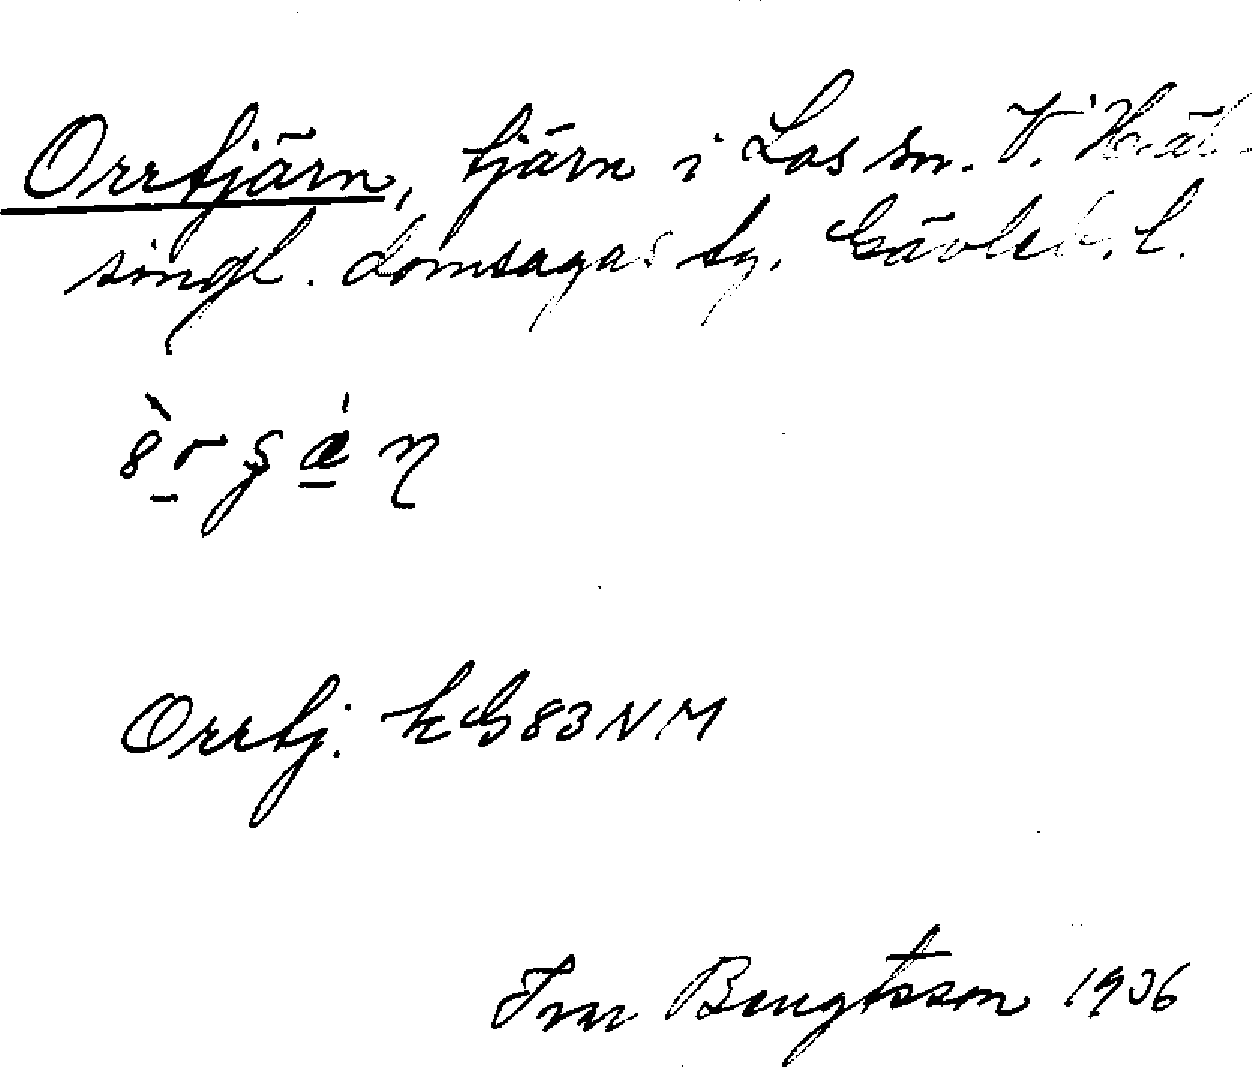 Orrtjärn, tjärn i Los sn. V. Häl-
singl. domsagas tg. Gävleb. l.
Orrtj. kG83NM
Ivar Bengtsson 1936